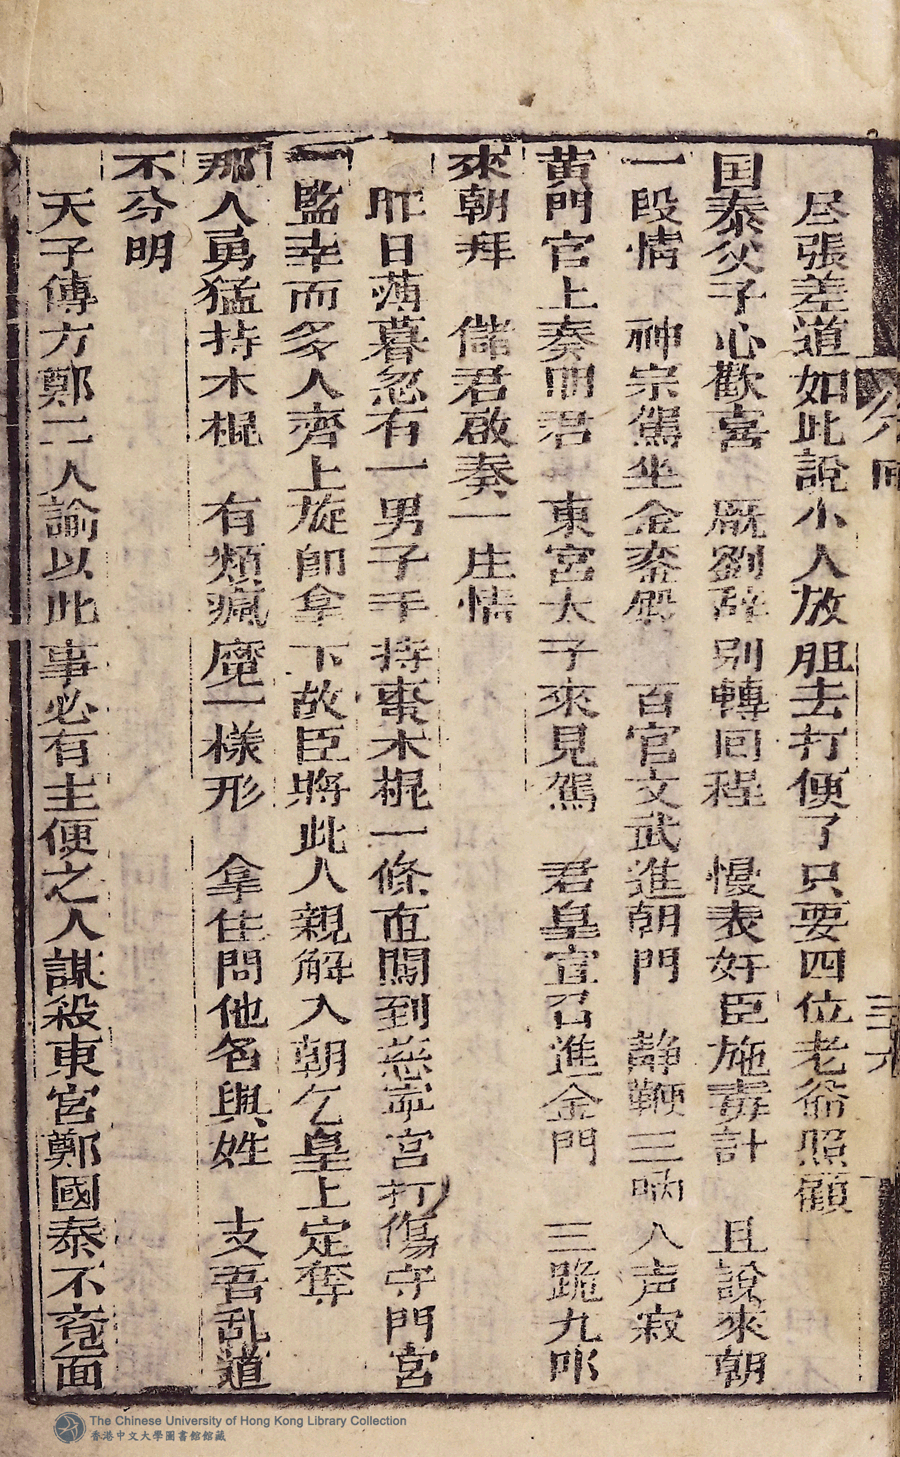 尽張差道如此說小人放胆去打便了只要四位老爺照顧
国泰父子心歡喜　厰劉辞別轉回程　慢表奸臣施毒計　且說來朝
一段情　神宗駕坐金銮殿　百官文武進朝門　静鞭三响人声寂
黄門官上奏明君　東宮太子來見駕　君皇宣召進金門　三跪九叩
來朝拜　儲君啟奏一庄情
昨日薄暮忽有一男子手持棗木棍一條直闖到慈寧宮打傷守門宮
監幸而多人齊上旋即拿下故臣將此人親解入朝乞皇上定奪
那人勇猛持木棍　有類瘋魔一樣形　拿住問他名與姓　支吾乱道
不分明
天子傳方鄭二人諭以此事必有主使之人謀殺東宮鄭國泰不覚面
回
The Chinese University of Hong Kong Library Collection
香港中文大學圖書館館藏